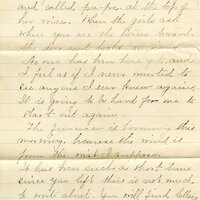 and called papa at the top of
her voice. When the girls ask
where you are she turns towards
the door and looks
No one has been here yet and
I feel as if I never wanted to
see anyone I ever knew again.
It is going to be hard for me to
start out again.
The is booming this
morning, because the wind is
from the west I suppose.
It has been such a short time
since you left there is not much
to write about. You will find letter